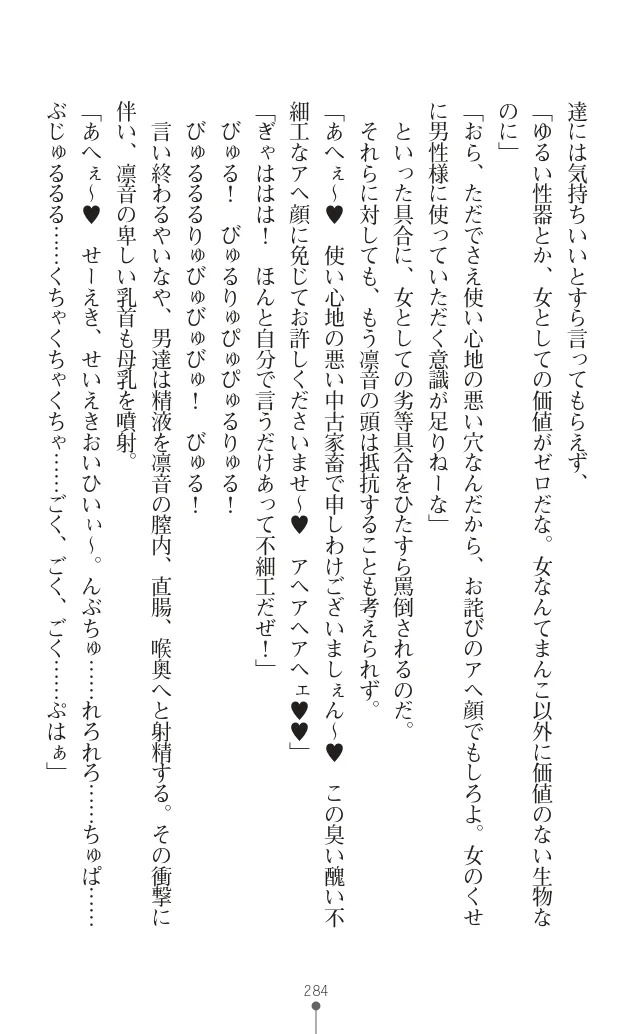 達には気持ちいいとすら言ってもらえず、
「ゆるい性器とか、女としての価値がゼロだな。女なんてまんこ以外に価値のない生物な
のに」
「おら、ただでさえ使い心地の悪い穴なんだから、お詫びのアヘ顔でもしろよ。女のくせ
に男性様に使っていただく意識が足りねーな」
といった具合に、女としての劣等具合をひたすら罵倒されるのだ。
それらに対しても、もう凛音の頭は抵抗することも考えられず。
「あへぇ～♥　使い心地の悪い中古家畜で申しわけございましぇん～♥　この臭い醜い不
細工なアヘ顔に免じてお許しくださいませ～♥　アヘアヘアヘェ♥♥」
「ぎゃははは！　ほんと自分で言うだけあって不細工だぜ！」
びゅる！　びゅるりゅぴゅぴゅるりゅる！
びゅるるるりゅびゅびゅびゅ！　びゅる！
言い終わるやいなや、男達は精液を凛音の膣内、直腸、喉奥へと射精する。その衝撃に
伴い、凛音の卑しい乳首も母乳を噴射。
「あへぇ～♥　せーえき、せいえきおいひいぃ～。んぶちゅ……れろれろ……ちゅぱ……
ぶじゅるるる……くちゃくちゃくちゃ……ごく、ごく、ごく……ぷはぁ」
284